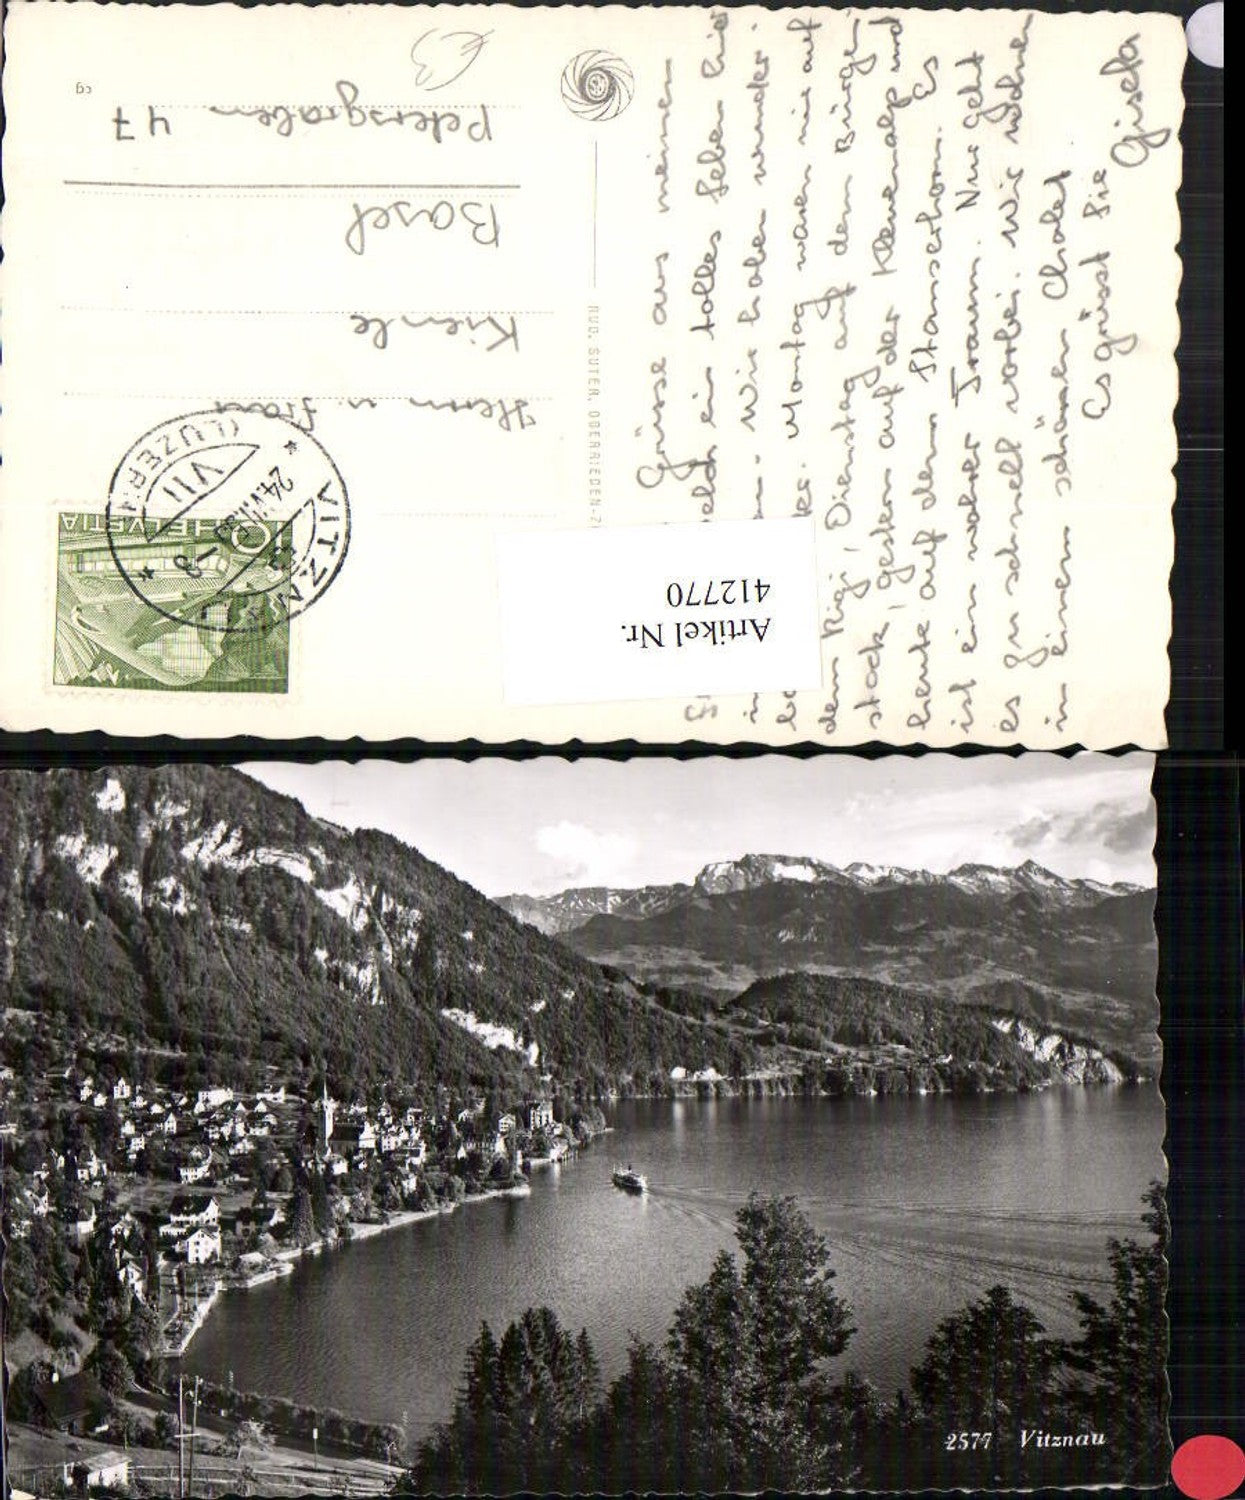 Grüsse aus meinen
welch ein tolles Leben hier
Wir haben wunder-
Montag waren wir auf
dem Rigi, Dienstag auf dem Bürgen-
stock, gestern auf der Klewenalp und
heute auf dem Stanserhorn. Es
ist ein wahrer Traum. Nur geht
es zu schnell vorbei. Wir wohnen
in einem schönen Chalet
Es grüsst Sie
Gisela
RUD. SUTER, OBERRIEDEN-Z
Herrn u. Frau
Kienle
Basel
Petersgraben 47
cg
€3
VITZNAU
(LUZERN)
24.VIII.
VII
10 HELVETIA
Artikel Nr.
412770
2577 Vitznau